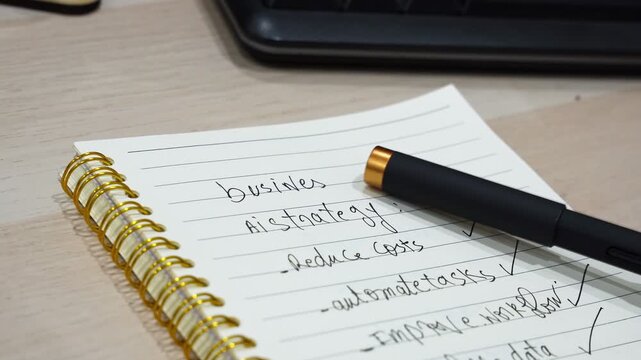 busines
AI strategy:
- Reduce Costs ✓
- automate tasks ✓
- Improve workflow ✓
data ✓